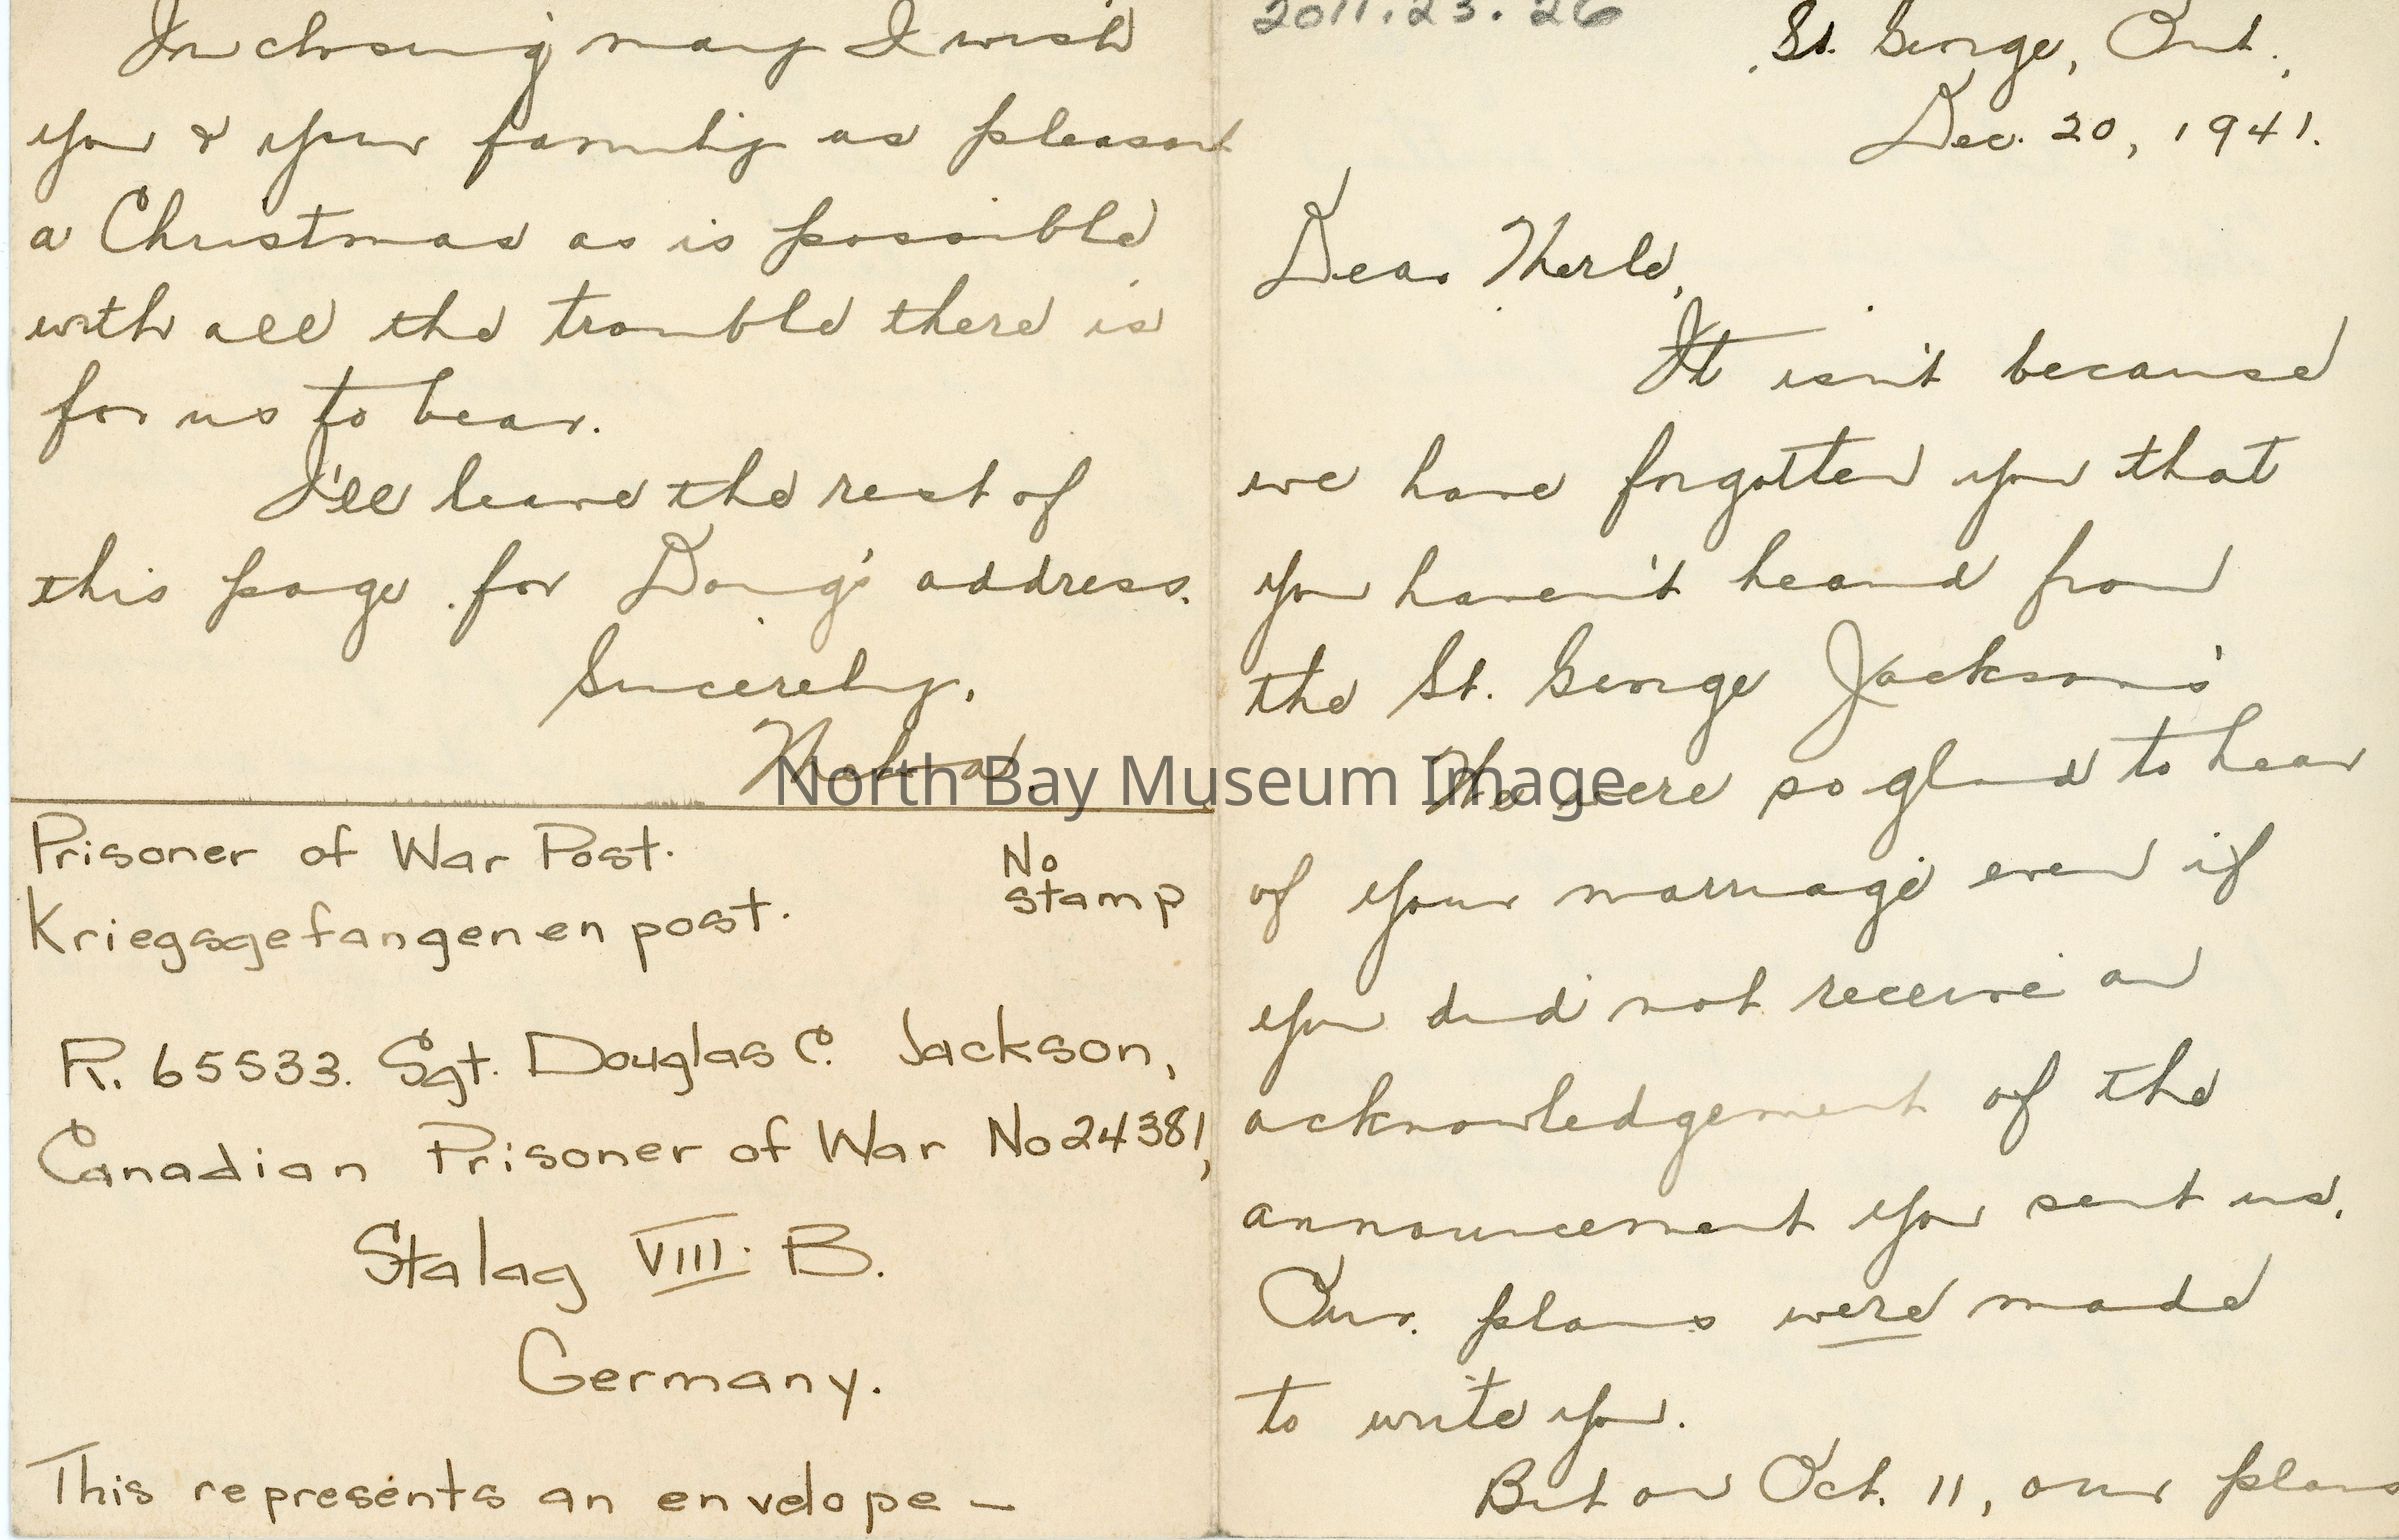 In closing may I wish
you & your family as pleasant
a Christmas as is possible
with all the trouble there is
for us to bear.
I'll leave the rest of
this page for Doug's address.
Sincerely,
Prisoner of War Post.
No
stamp
Kriegsgefangenenpost.
R. 65533. Sgt. Douglas C. Jackson,
Canadian Prisoner of War No 24381,
Stalag VIII. B.
Germany.
This represents an envelope —
2011.23.26
St. George, Ont.,
Dec. 20, 1941.
Dear Merle,
It isn't because
we have forgotten you that
you haven't heard from
the St. George Jackson's
We were so glad to hear
of your marriage even if
you did not receive an
acknowledgement of the
announcement you sent us.
Our plans were made
to write you.
But on Oct. 11, our plans
North Bay Museum Image